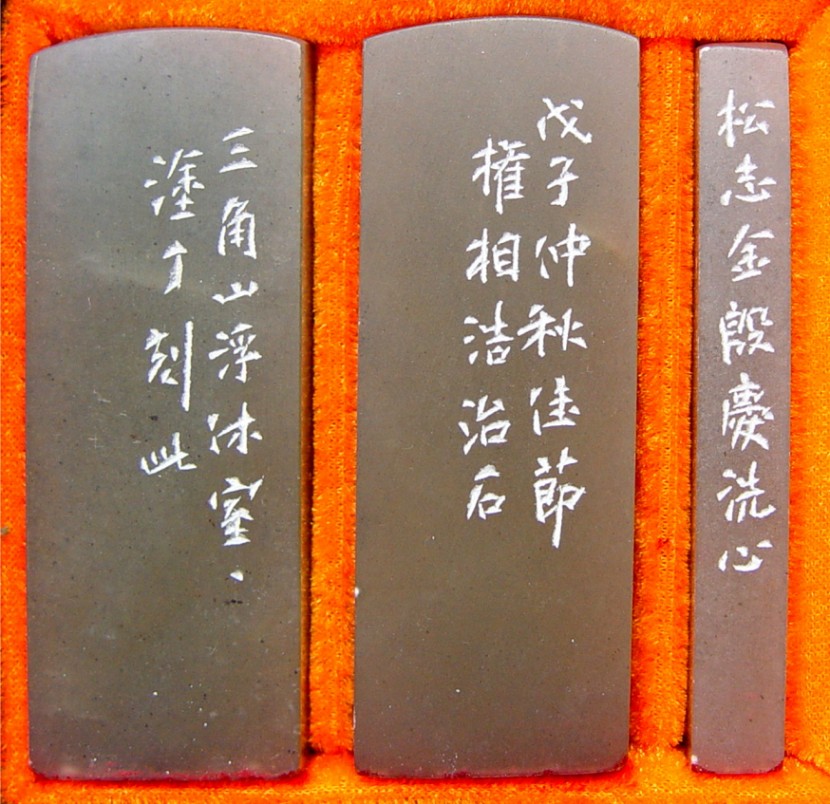 松志金殷慶洗心
戊子仲秋佳節
權相浩治石
三角山浮休室、
塗丁刻此